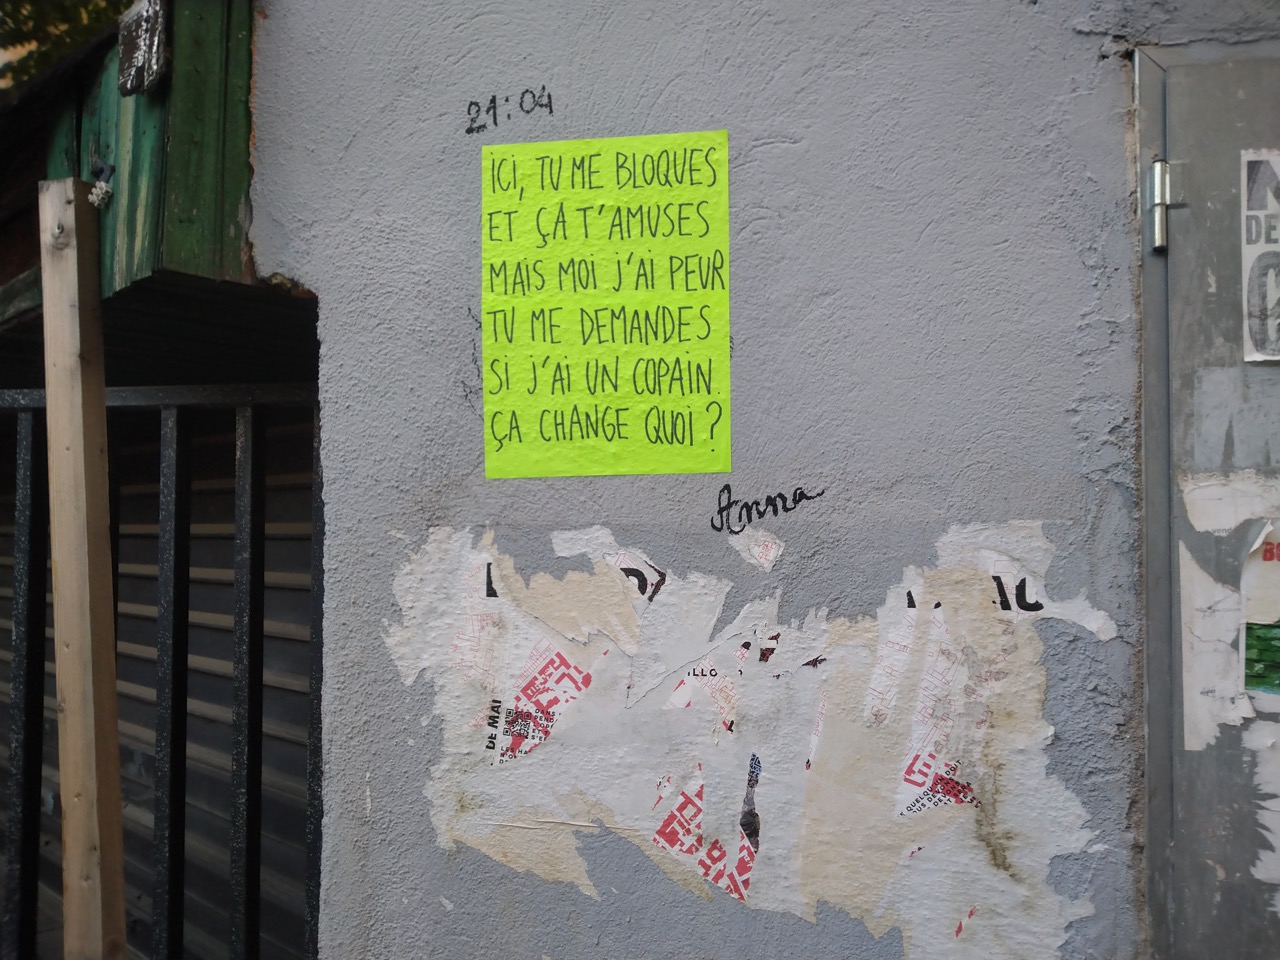 21:04
ICI, TU ME BLOQUES
ET ÇA T'AMUSES
MAIS MOI J'AI PEUR
TU ME DEMANDES
SI J'AI UN COPAIN.
ÇA CHANGE QUOI ?
Anna
DE MAI